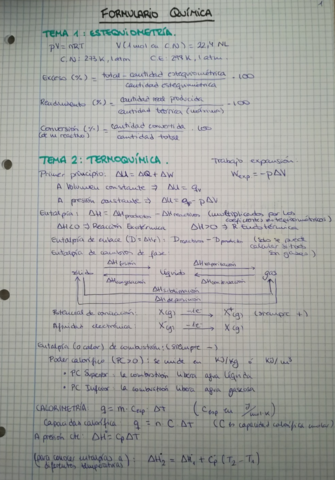 1
FORMULARIO QUÍMICA
TEMA 1: ESTEQUIOMETRÍA.
pV = nRT V (1 mol en C.N) = 22,4 NL
C.N: 273 K, 1 atm C.E: 298 K, 1 atm
Exceso (%) = total - cantidad estequiométrica / cantidad estequiométrica · 100
Rendimiento (%) = cantidad real producida / cantidad teórica (máxima) · 100
Conversión (%) = cantidad convertida / cantidad total · 100
(de un reactivo)
TEMA 2: TERMOQUÍMICA. Trabajo expansión
Primer principio: ΔU = ΔQ + ΔW Wexp = -pΔV
A volumen constante → ΔU = qv
A presión constante → ΔU = qp - pΔV
Entalpía: ΔH = ΔH productos - ΔH reactivos (multiplicados por los coeficientes estequiométricos)
ΔH<0 → Reacción Exotérmica ΔH>0 → R. Endotérmica
Entalpía de enlace (D = ΔHr): D reactivos - D productos (solo se puede calcular si todo son gases)
Entalpía de cambios de fase
ΔH fusión ΔH vaporización
sólido líquido gas
ΔH congelación ΔH condensación
ΔH sublimación
Potencial de ionización X(g) -1e⁻ → X⁺(g) (siempre +)
Afinidad electrónica X(g) +1e⁻ → X⁻(g)
Entalpía (o calor) de combustión: (siempre -)
Poder calorífico (PC>0): se mide en kJ/kg ó kJ/m³
• PC Superior: la combustión libera agua líquida
• PC Inferior: la combustión libera agua gaseosa
CALORIMETRÍA q = m · Cesp ΔT (Cesp en J/mol·K)
Capacidad calorífica q = n C ΔT (C es capacidad calorífica molar)
A presión cte ΔH = Cp ΔT
(para conocer entalpías a diferentes temperaturas): ΔH₂ = ΔH₁ + Cp (T₂ - T₁)